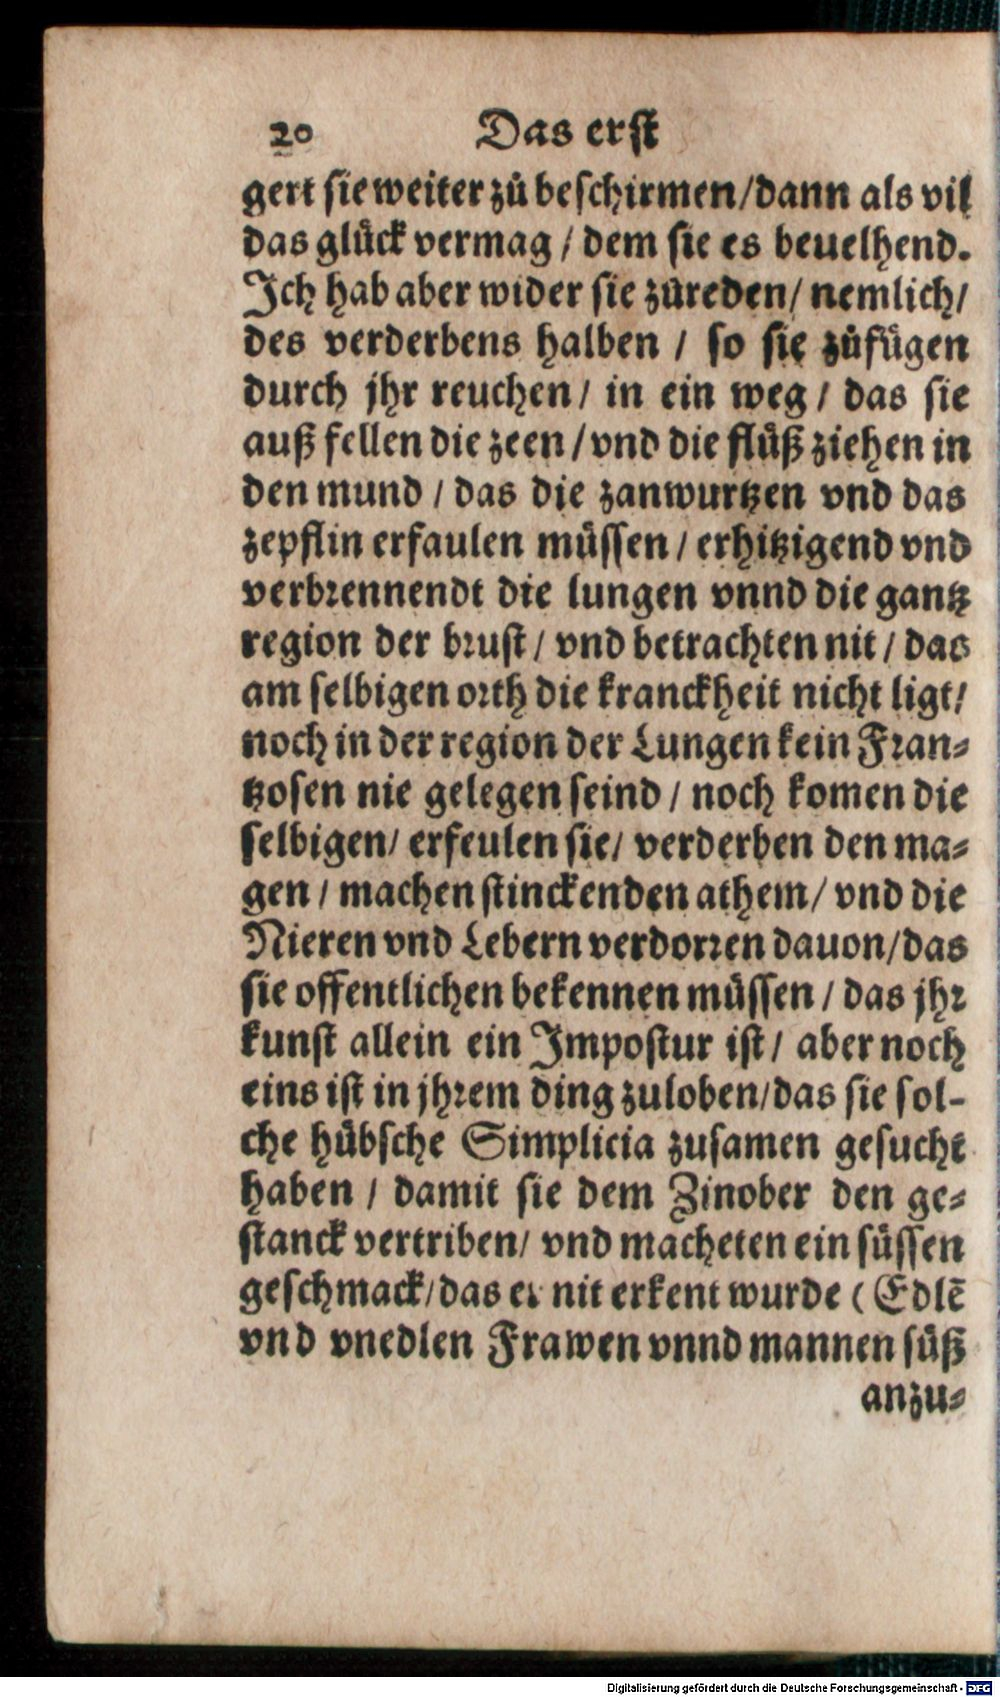 20 Das erst
gert sie weiter zů beschirmen/dann als vil
das glück vermag / dem sie es beuelhend.
Ich hab aber wider sie zůreden/ nemlich/
des verderbens halben / so sie zůfügen
durch jhr reuchen/ in ein weg / das sie
auß fellen die zeen / vnd die flüß ziehen in
den mund / das die zanwurtzen vnd das
zepflin erfaulen müssen / erhitzigend vnd
verbrennendt die lungen vnnd die gantz
region der brust / vnd betrachten nit / das
am selbigen orth die kranckheit nicht ligt/
noch in der region der Lungen kein Fran-
tzosen nie gelegen seind / noch komen die
selbigen/ erfeulen sie/ verderben den ma-
gen / machen stinckenden athem/ vnd die
Nieren vnd Lebern verdorren dauon/das
sie offentlichen bekennen müssen / das jhr
kunst allein ein Impostur ist/ aber noch
eins ist in jhrem ding zuloben/das sie sol-
che hübsche Simplicia zusamen gesucht
haben / damit sie dem Zinober den ge-
stanck vertriben/ vnd macheten ein süssen
geschmack/das er nit erkent wurde ( Edlē
vnd vnedlen Frawen vnnd mannen süß
anzu-
Digitalisierung gefördert durch die Deutsche Forschungsgemeinschaft - DFG